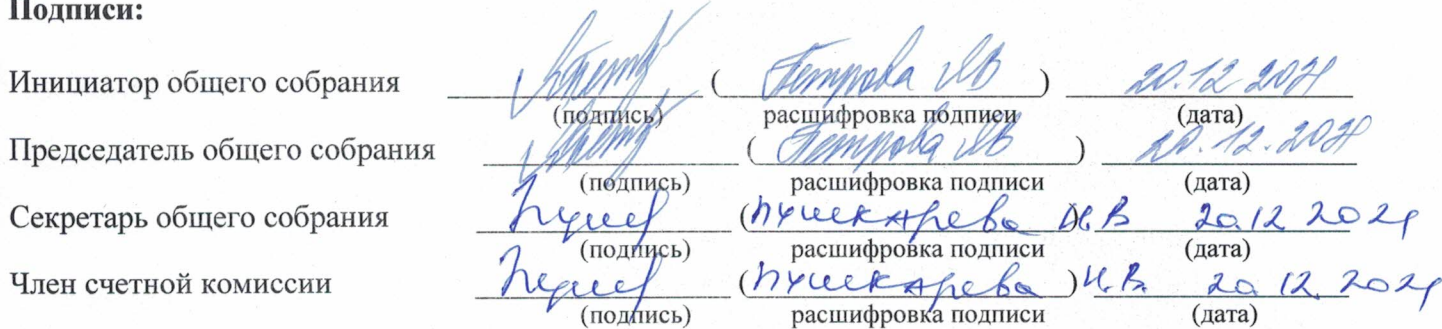 Подписи:
Инициатор общего собрания (Петрова ЯВ) 20.12 2021
(подпись) расшифровка подписи (дата)
Председатель общего собрания (Петрова ЯВ) 20.12.2021
(подпись) расшифровка подписи (дата)
Секретарь общего собрания (Пушкарева) И.В 20.12 2021
(подпись) расшифровка подписи (дата)
Член счетной комиссии (Пушкарева) И.В. 20 12. 2021
(подпись) расшифровка подписи (дата)